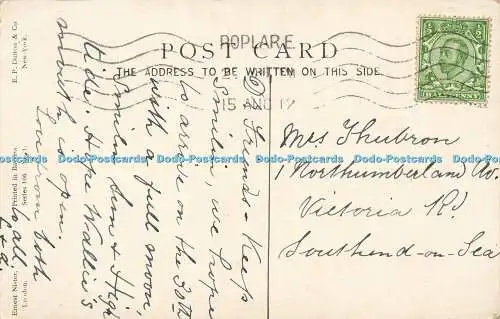 POPLAR.E
15 AUG 12
POST CARD
THE ADDRESS TO BE WRITTEN ON THIS SIDE.
E. P. Dutton & Co
New York.
Ernest Nister,
London.
Printed in Bavaria.
Series 166
Friends - Keep
Smilin, we hope
to arrive on the 30th
with a full moon,
Smilin Sun & High
tides. Hope Wallie's
mouth is open.
Love from both
to all
Mrs Thubron
1 Northumberland Av.
Victoria Rd
Southend-on-Sea
Dodo-Postcards Dodo-Postcards Dodo-Postcards Dodo-Postcards Dodo-Postcards Dodo-Postcards